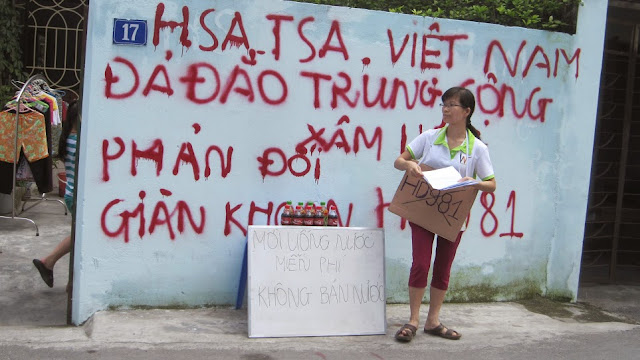 17
HSA.TSA. VIỆT NAM
ĐẢ ĐẢO TRUNG CỘNG
XÂM
PHẢN ĐỐI
GIÀN KHOAN HD981
HD981
MỜI UỐNG NƯỚC
MIỄN PHÍ
KHÔNG BÁN NƯỚC